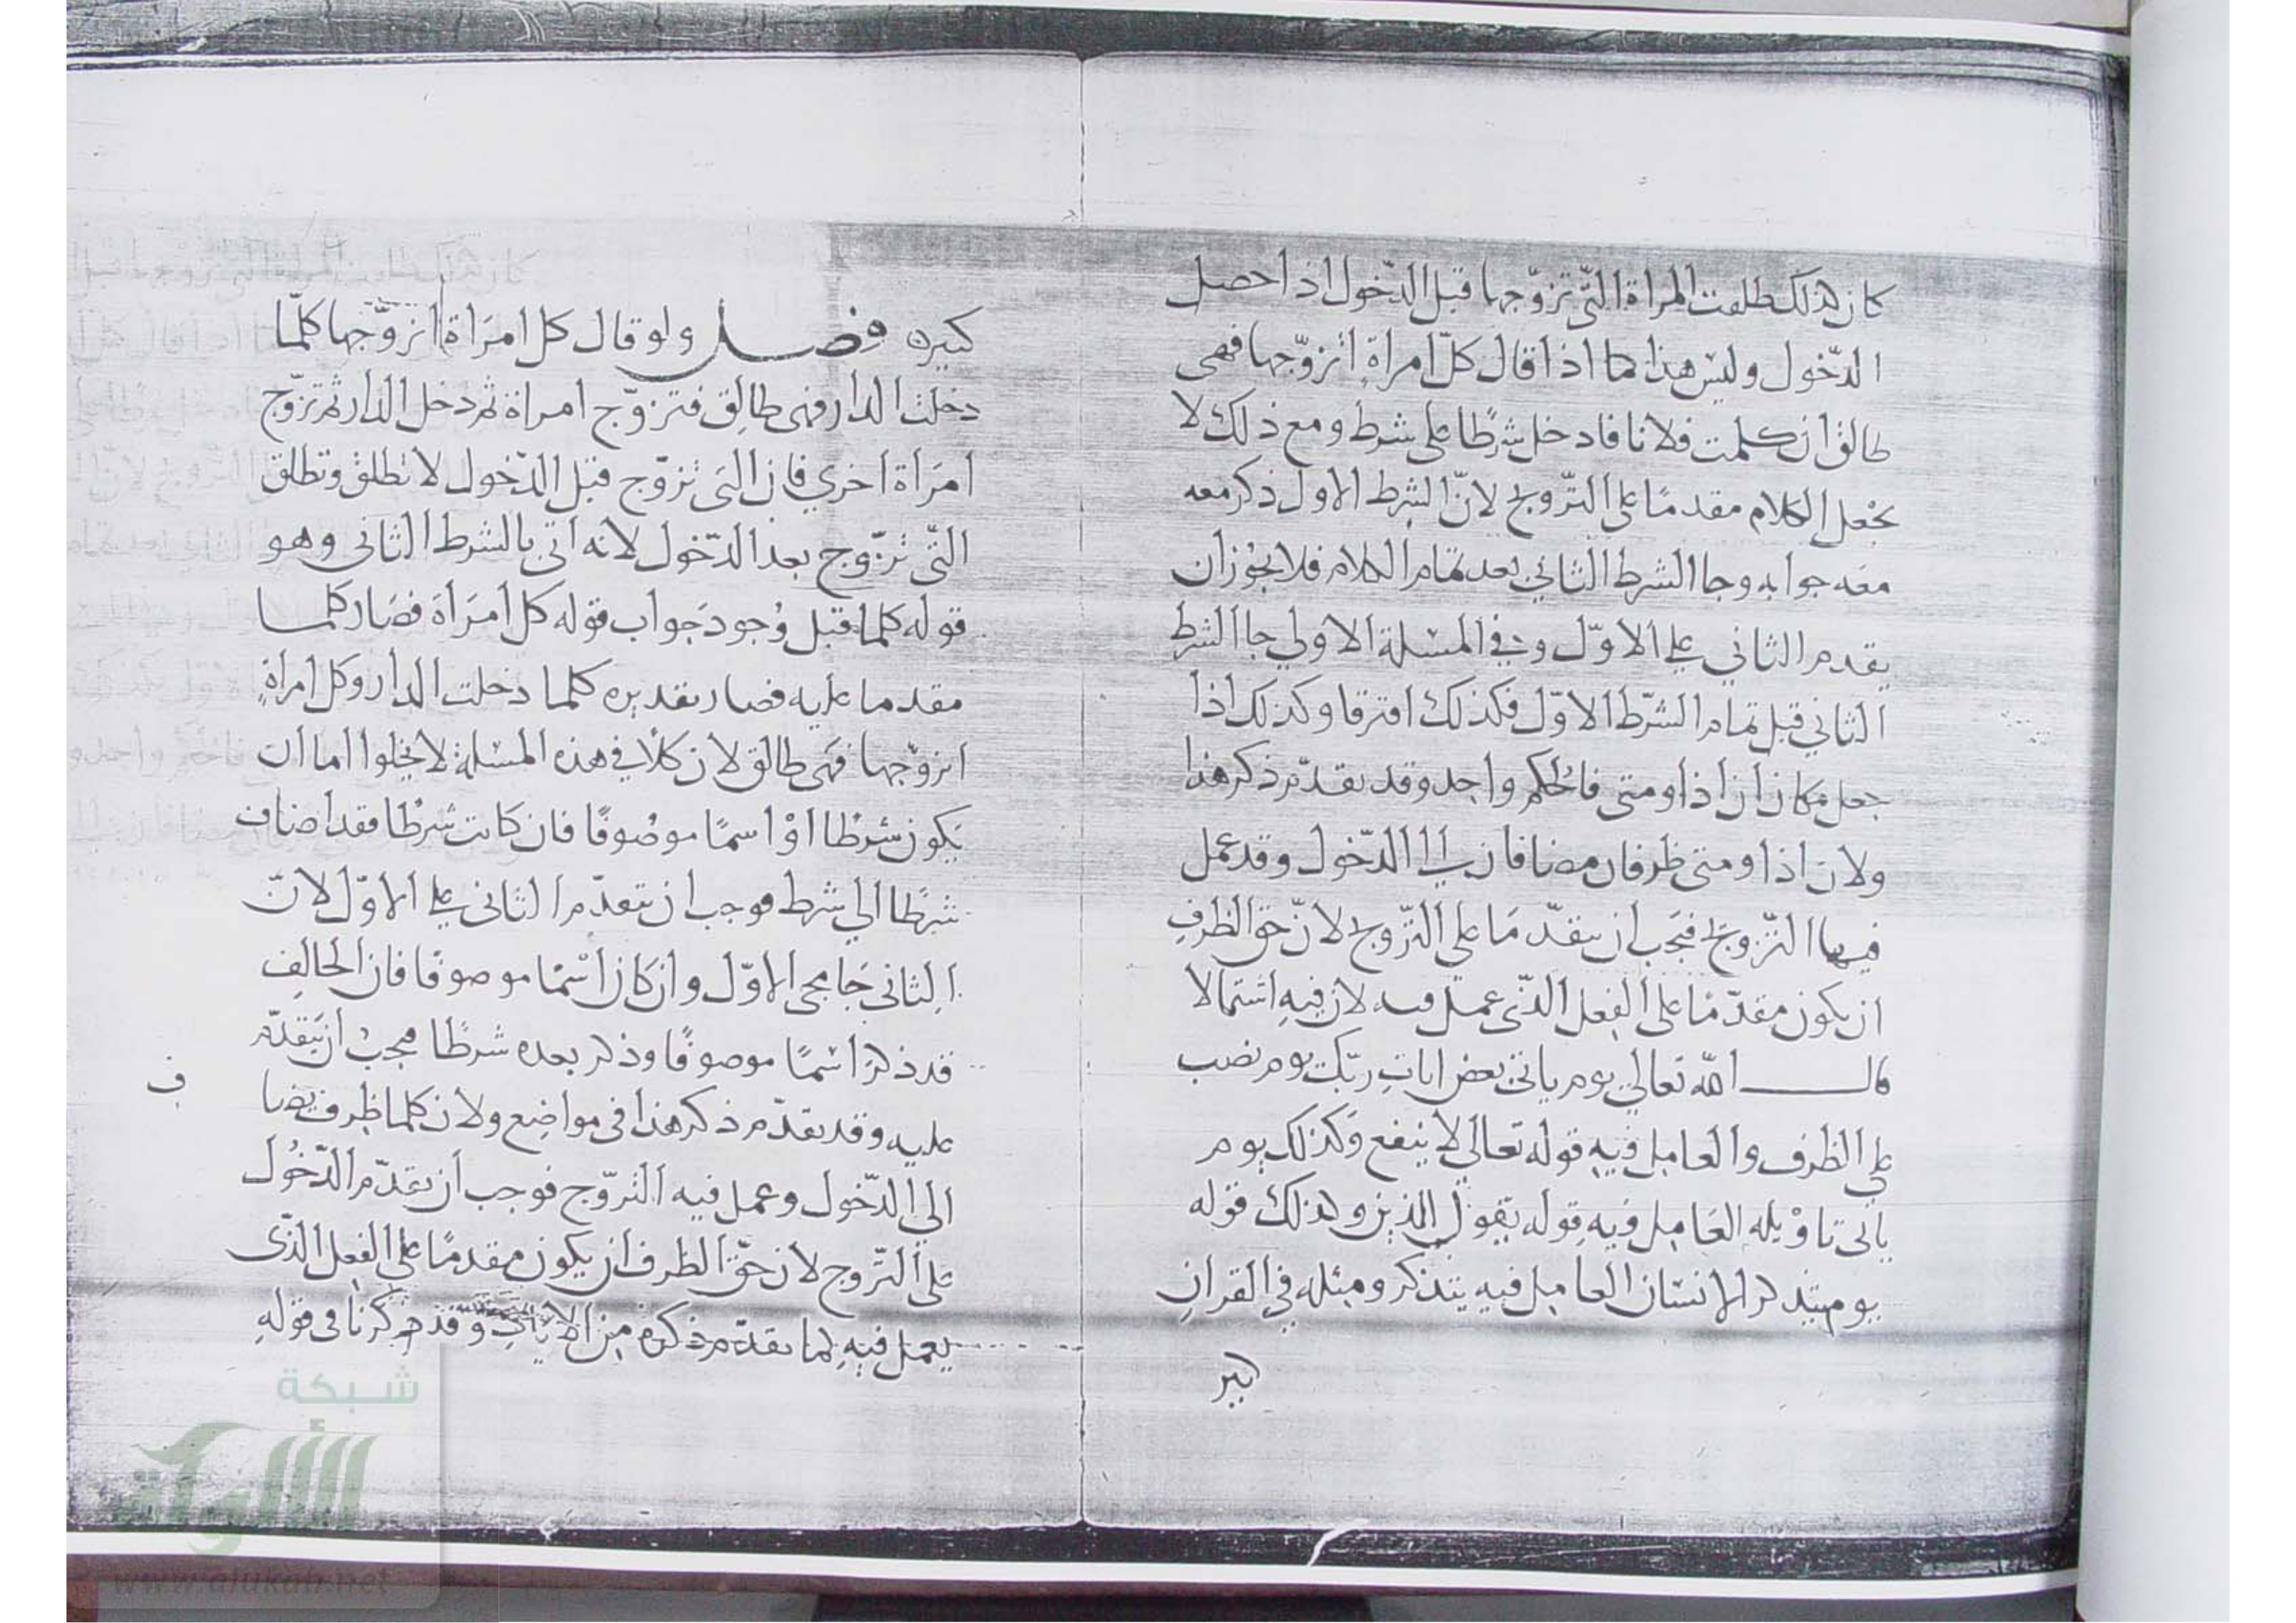 كان كذلك طلقت المراة التّى تزوّجها قبل الدّخول اذا حصل
الدّخول وليس هذا كما اذا قال كلّ امراةٍ اتزوّجها فهى
طالق ان كلمت فلانا فادخل شرطًا على شرط ومع ذلك لا
يجعل الكلام مقدمًا على التزّوج لانّ الشرط الاول ذكر معه
معه جوابه وجا الشرط الثاني بعد تمام الكلام فلا يجوز ان
يقدم الثاني على الاوّل وفي المسئلة الاولي جا الشرط
الثاني قبل تمام الشّرط الاوّل فكذلك افترقا وكذلك اذا
جعل مكان ان اذا ومتى فالحكم واحد وقد تقدّم ذكر هذا
ولان اذا ومتى ظرفان مضافان الى الدّخول وقد عمل
فيهما التّزوج فيجب ان يتقدّما على التّزوج لانّ حق الظرفِ
ان يكون مقدّمًا على الفعل الذّى عمل فيه لان فيه اشتمالا
قال الله تعالي يوم ياتى بعض ايات ربّك يوم نصب
على الظرف والعامل فيه قوله تعالى لا ينفع وكذلك يوم
ياتى تاويله العامل فيه قوله يقول الذين وكذلك قوله
يوميئذ يتذكر الانسان العامل فيه يتذكر ومثله في القران
كبير
كثيره فصل ولو قال كل امرَاة اتزوّجها كلمّا
دخلت الدار فهى طالِق فتزوّج امراة ثم دخل الدار ثم تزوّج
امرَأة اخري فان التى تزوّج قبل الدّخول لا تطلق وتطلق
التّى تزّوج بعد الدّخول لانه اتى بالشرط الثانى وهو
قوله كلما قبل وُجود جَواب قوله كل امرَأة فصَار كلما
مقدما عليه فصار تقديره كلما دخلت الدار وكل امراةٍ
اتزوّجها فهى طالق لان كلاً في هذه المسئلة لا يخلوا اما ان
يكون شرطا اوْ اسمًا موصُوفًا فان كانت شرطًا فقد اضاف
شرطًا الي شرط فوجب ان يتقدّم الثانى على الاوّل لانّ
الثانى جا مجى الاوّل وان كان اسمًا موصوفا فان الحالِف
قد ذكر اسمًا موصوفًا وذكر بعده شرطًا فيجب ان يَتقدّم
عليه وقد تقدّم ذكر هذا فى مواضِع ولان كلما ظرف يضا
ف
الى الدّخول وعمل فيه التزّوج فوجب ان يقدّم الدّخُول
على التزّوج لان حقّ الظرف ان يكون مقدمًا على الفِعل الذّى
يعمل فيهِ لما تقدّم ذكره من الايات وقد ذكرنا فى قولهِ
شبكة
الألوكة
www.alukah.net